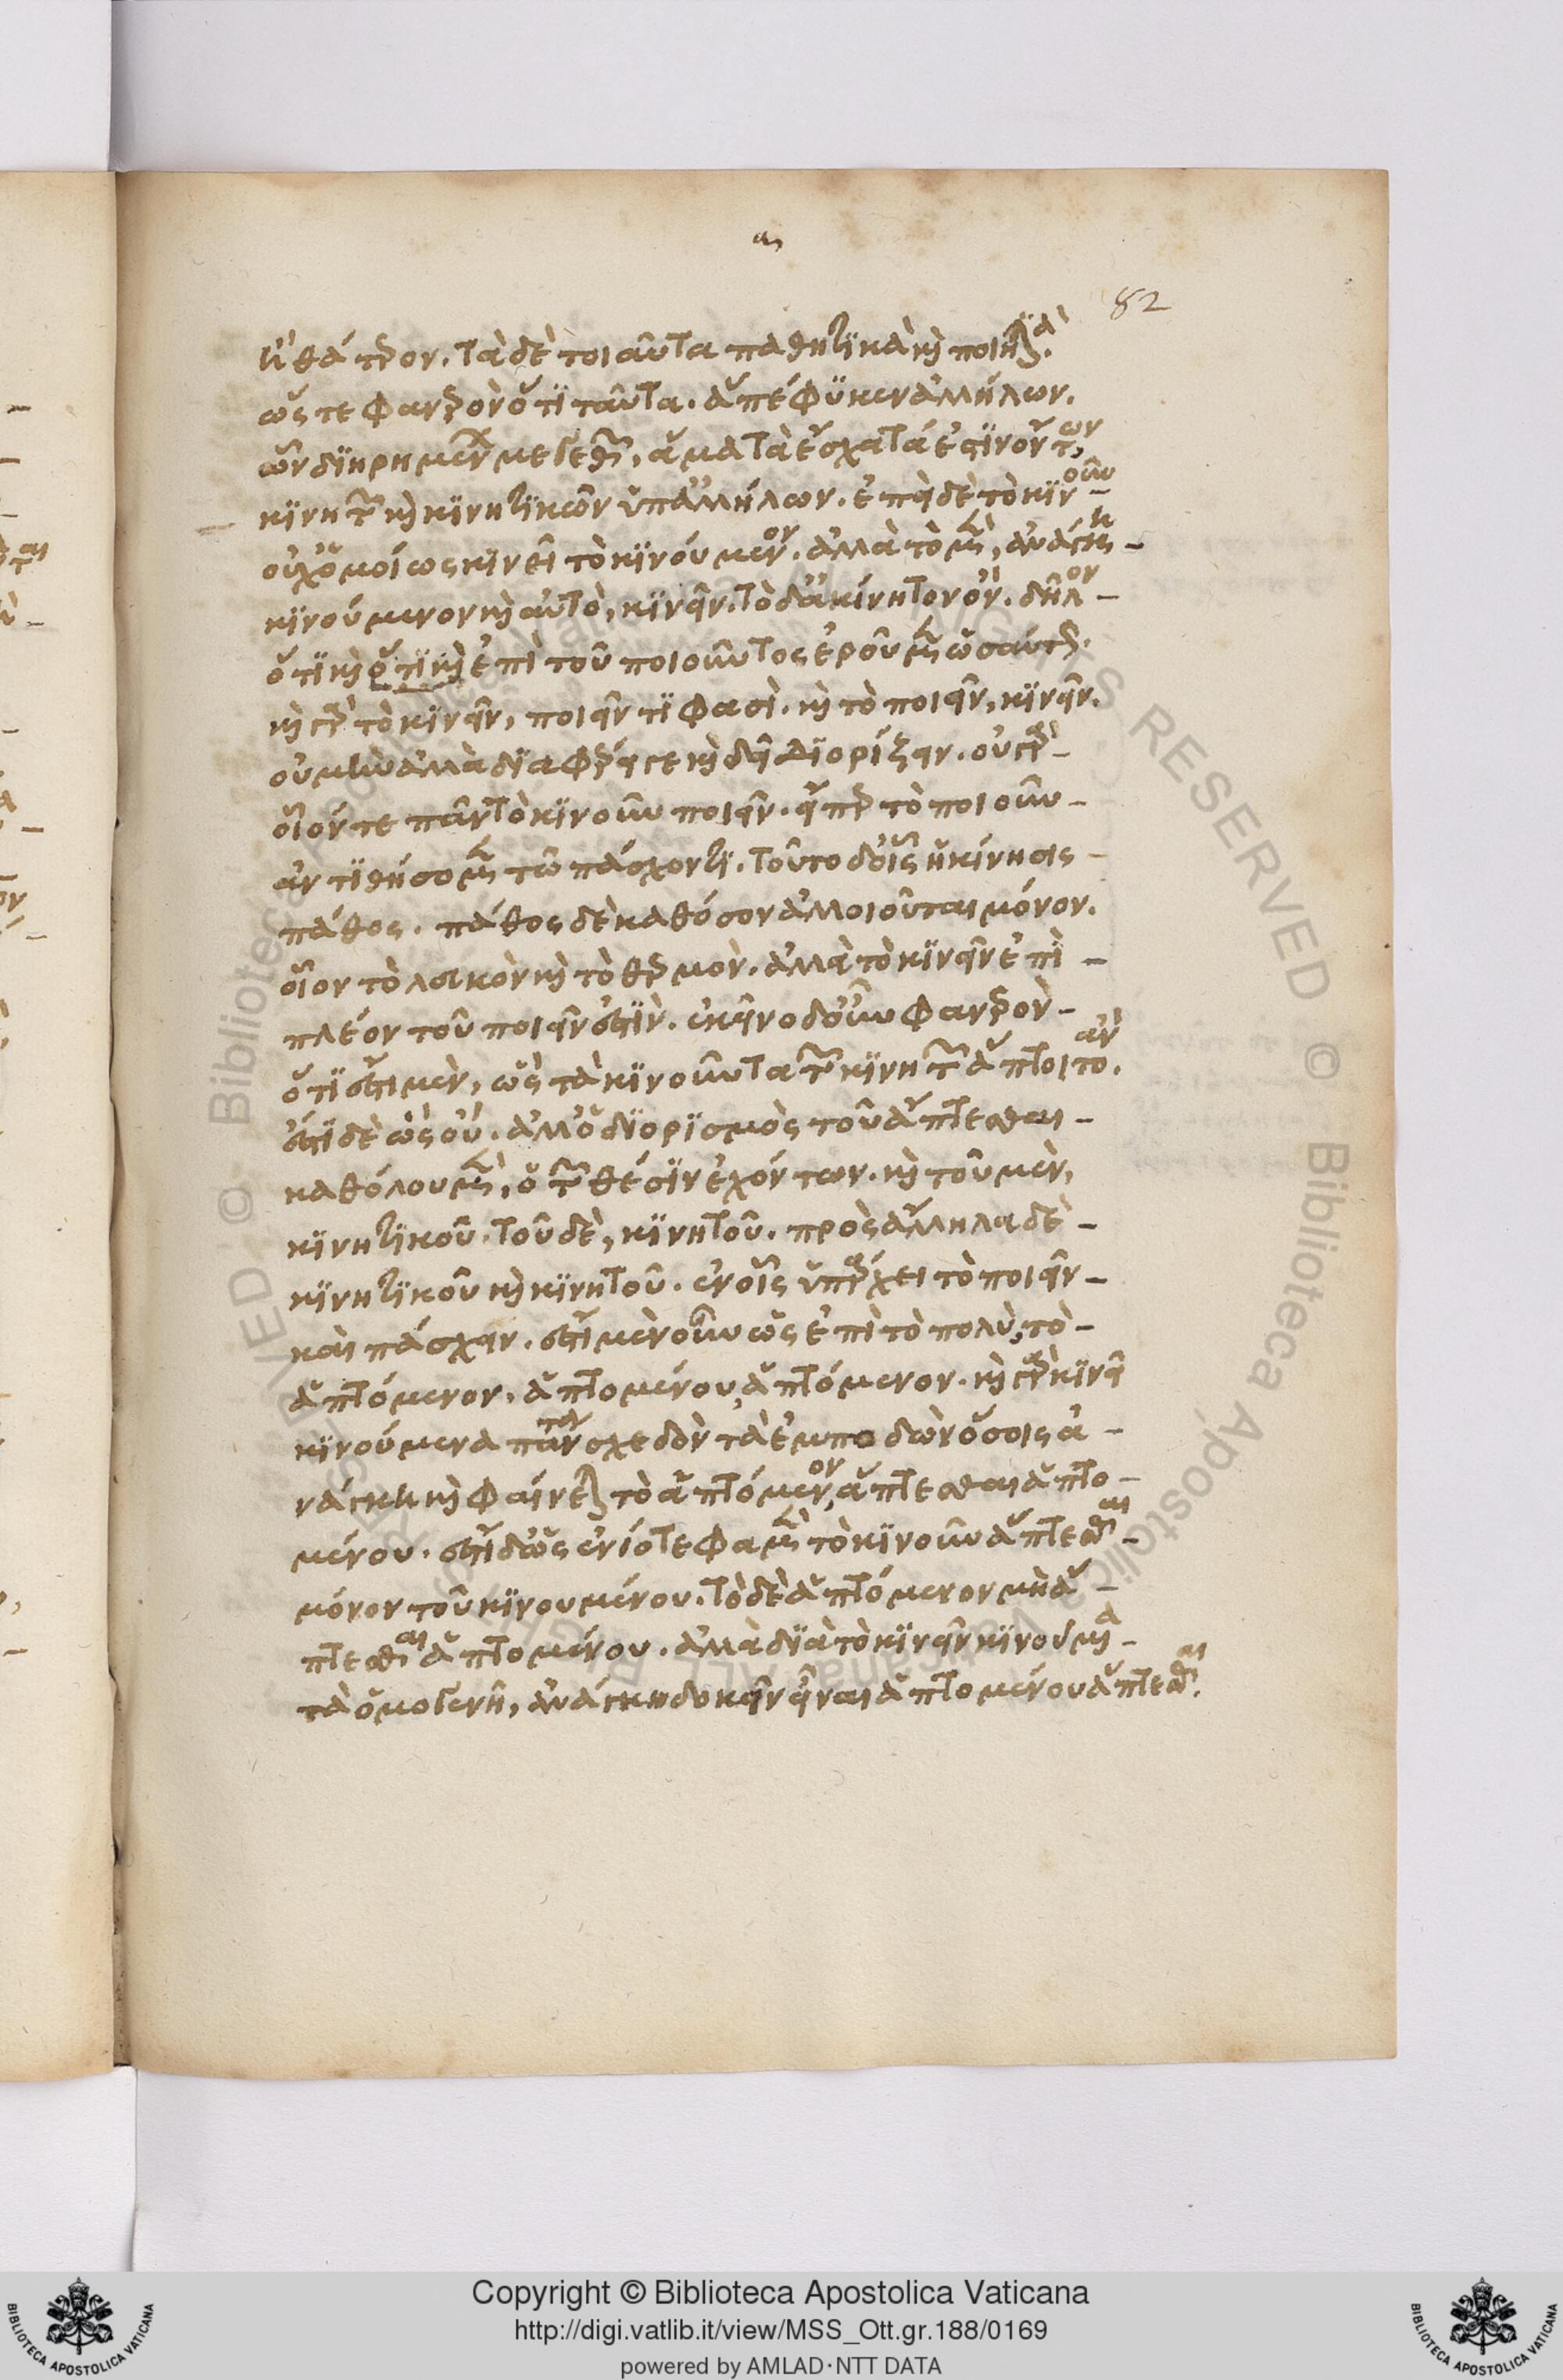 α
82
ἢ θάτερον. τὰ δὲ τοιαῦτα παθητικὰ καὶ ποιητικά.
ὥστε φανερὸν ὅτι ταῦτα. ἅπτεσθαι πέφυκεν ἀλλήλων.
ὧν διῃρημένων μεγεθῶν, ἅμα τὰ ἔσχατά ἐστιν ὄντων,
κινητῶν καὶ κινητικῶν ὑπ' ἀλλήλων. ἐπεὶ δὲ τὸ κινοῦν
οὐχ ὁμοίως κινεῖ τὸ κινούμενον. ἀλλὰ τὸ μὲν, ἀνάγκη
κινούμενον καὶ αὐτὸ, κινεῖν. τὸ δ' ἀκίνητον ὄν. δῆλον
ὅτι καὶ ὅτι καὶ ἐπὶ τοῦ ποιοῦντος ἐροῦμεν ὡσαύτως.
καὶ γὰρ τὸ κινεῖν, ποιεῖν τί φασὶ. καὶ τὸ ποιεῖν, κινεῖν.
οὐ μὴν ἀλλὰ διαφέρει γε καὶ δεῖ διορίζειν. οὐ γὰρ
οἷόν τε πᾶν τὸ κινοῦν ποιεῖν. εἴπερ τὸ ποιοῦν
ἀντιθήσομεν τῷ πάσχοντι. τοῦτο δ' οἷς ἡ κίνησις
πάθος. πάθος δὲ καθόσον ἀλλοιοῦται μόνον.
οἷον τὸ λευκὸν καὶ τὸ θερμόν. ἀλλὰ τὸ κινεῖν ἐπὶ
πλέον τοῦ ποιεῖν ἐστίν. ἐκεῖνο δ' οὖν φανερὸν
ὅτι ἔστι μὲν, ὡς τὰ κινοῦντα τῶν κινητῶν ἅπτοιτο ἄν.
ἔστι δὲ ὡς οὔ. ἀλλ' ὁ διορισμὸς τοῦ ἅπτεσθαι
καθόλου μὲν, ὁ τῶν θέσιν ἐχόντων. καὶ τοῦ μὲν,
κινητικοῦ. τοῦ δὲ, κινητοῦ. πρὸς ἄλληλα δὲ
κινητικοῦ καὶ κινητοῦ. ἐν οἷς ὑπάρχει τὸ ποιεῖν
καὶ πάσχειν. ἔστι μὲν οὖν ὡς ἐπὶ τὸ πολὺ, τὸ
ἁπτόμενον, ἁπτομένου, ἁπτόμενον. καὶ γὰρ κινεῖ
κινούμενα πάντα σχεδὸν τὰ ἐμποδὼν ὅσοις ἀ
νάγκη καὶ φαίνεται τὸ ἁπτόμενον, ἅπτεσθαι ἁπτο
μένου. ἔστι δ' ὡς ἐνίοτε φαμὲν τὸ κινοῦν ἅπτεσθαι
μόνον τοῦ κινουμένου. τὸ δὲ ἁπτόμενον μὴ ἅ
πτεσθαι ἁπτομένου. ἀλλὰ διὰ τὸ κινεῖν κινούμενα
τὰ ὁμογενῆ, ἀνάγκη δοκεῖν εἶναι ἁπτομένου ἅπτεσθαι.
Copyright © Biblioteca Apostolica Vaticana
http://digi.vatlib.it/view/MSS_Ott.gr.188/0169
powered by AMLAD·NTT DATA